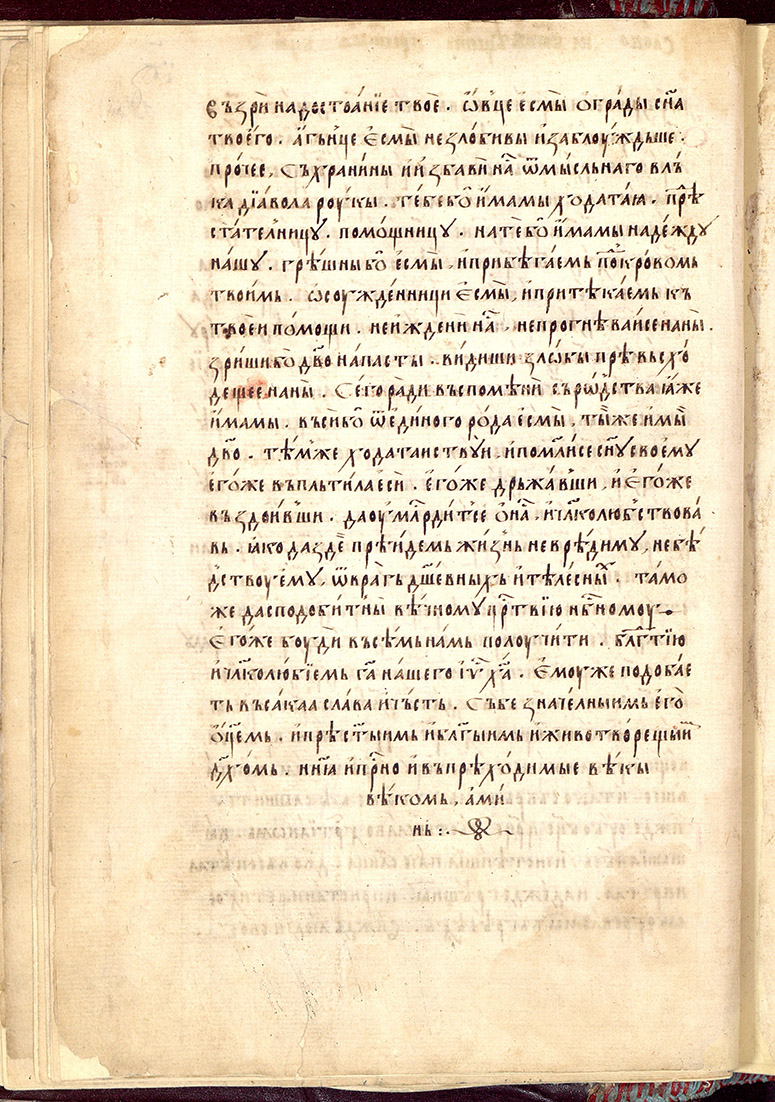 възрѝ на достоа́нїе твоѐ . ѽвце є҆смы̀ ѻ҆гра́ды сн҃а
твоего̀ . а҆́гньце є҆смы̀ незло́бивы и҆заблоу́ждьше .
про́чее , съхранѝны и҆ и҆збавѝ на̑ ѿ мы́сльнаго влъ
ка дїа́вола роукы̀ . те́бе бо̀ и҆́мамы хода́таю . прѣ̑
ста́телницꙋ . помо́щницꙋ . на те́ бо̀ и҆́мамы наде́ждꙋ
на́шꙋ . грѣ́шны бо̀ є҆смы̀ , и҆ прибѣга́емь по̑ кровомь
твои́мь . ѡ҆соужде́нници є҆смы̀ , и҆ притѣка́емь къ
твое́и по́мощи . не и҆жденѝ на̑ , не прогнѣ́ваисе на ны̀ .
зри́ши бо̀ дв҃о на́пасты . ви́диши ѕлѡ́бы прѣвьсхо́
деще́е на ны̀ . Сего̀ ра́ди въспомѣнѝ сърѡ́дства ꙗ҆́же
и҆́мамы . въсѝ бо̀ ѿ є҆ди́ного ро́да є҆смы̀ , ты́же и҆ мы̀
дв҃о . тѣ́мже хода́таиствꙋи , и҆ помл҃и́се сн҃ꙋ своемꙋ̀
є҆го́же въпльти́ла є҆сѝ . є҆го́же дрьжа́вши , и҆ є҆го́же
въздои́вши . да оу҆млⷭ҇рди́тсе ѻ҆ на̑ , и҆ чл҃колю́бствова
вь . ꙗ҆́ко да зде̑ прѣи́демь жи́знь невре́димꙋ , небѣ́
дствоуе́мꙋ , ѿ вра́гъ дш҃е́вныхъ и҆ тѣле́сны̑ . та́мо
же да сподоби́т ны̀ вѣ́чномꙋ црⷭ҇твїю нбⷭ҇номоу .
Є҆го́же боу́ди въсѣ́мь на́мь полоучи́ти . блгⷣтїю
и҆ чл҃колю́бїемь га҃ на́шего і҆у҃ ха҃ . є҆моу́же подоба́е
ть въса́каа сла́ва и҆ чъ́сть . съ бе значе́лныимь є҆го̀
ѻ҆ц҃е́мь . и҆ прѣст҃ыимь и҆ бл҃гыимь и҆ животво́рещыим̑
дх҃о́мь . нн҃ꙗ и҆ при́но и҆ въ прѣхо́димые вѣ́кы
вѣ́комь , а҆ми́
нь :·